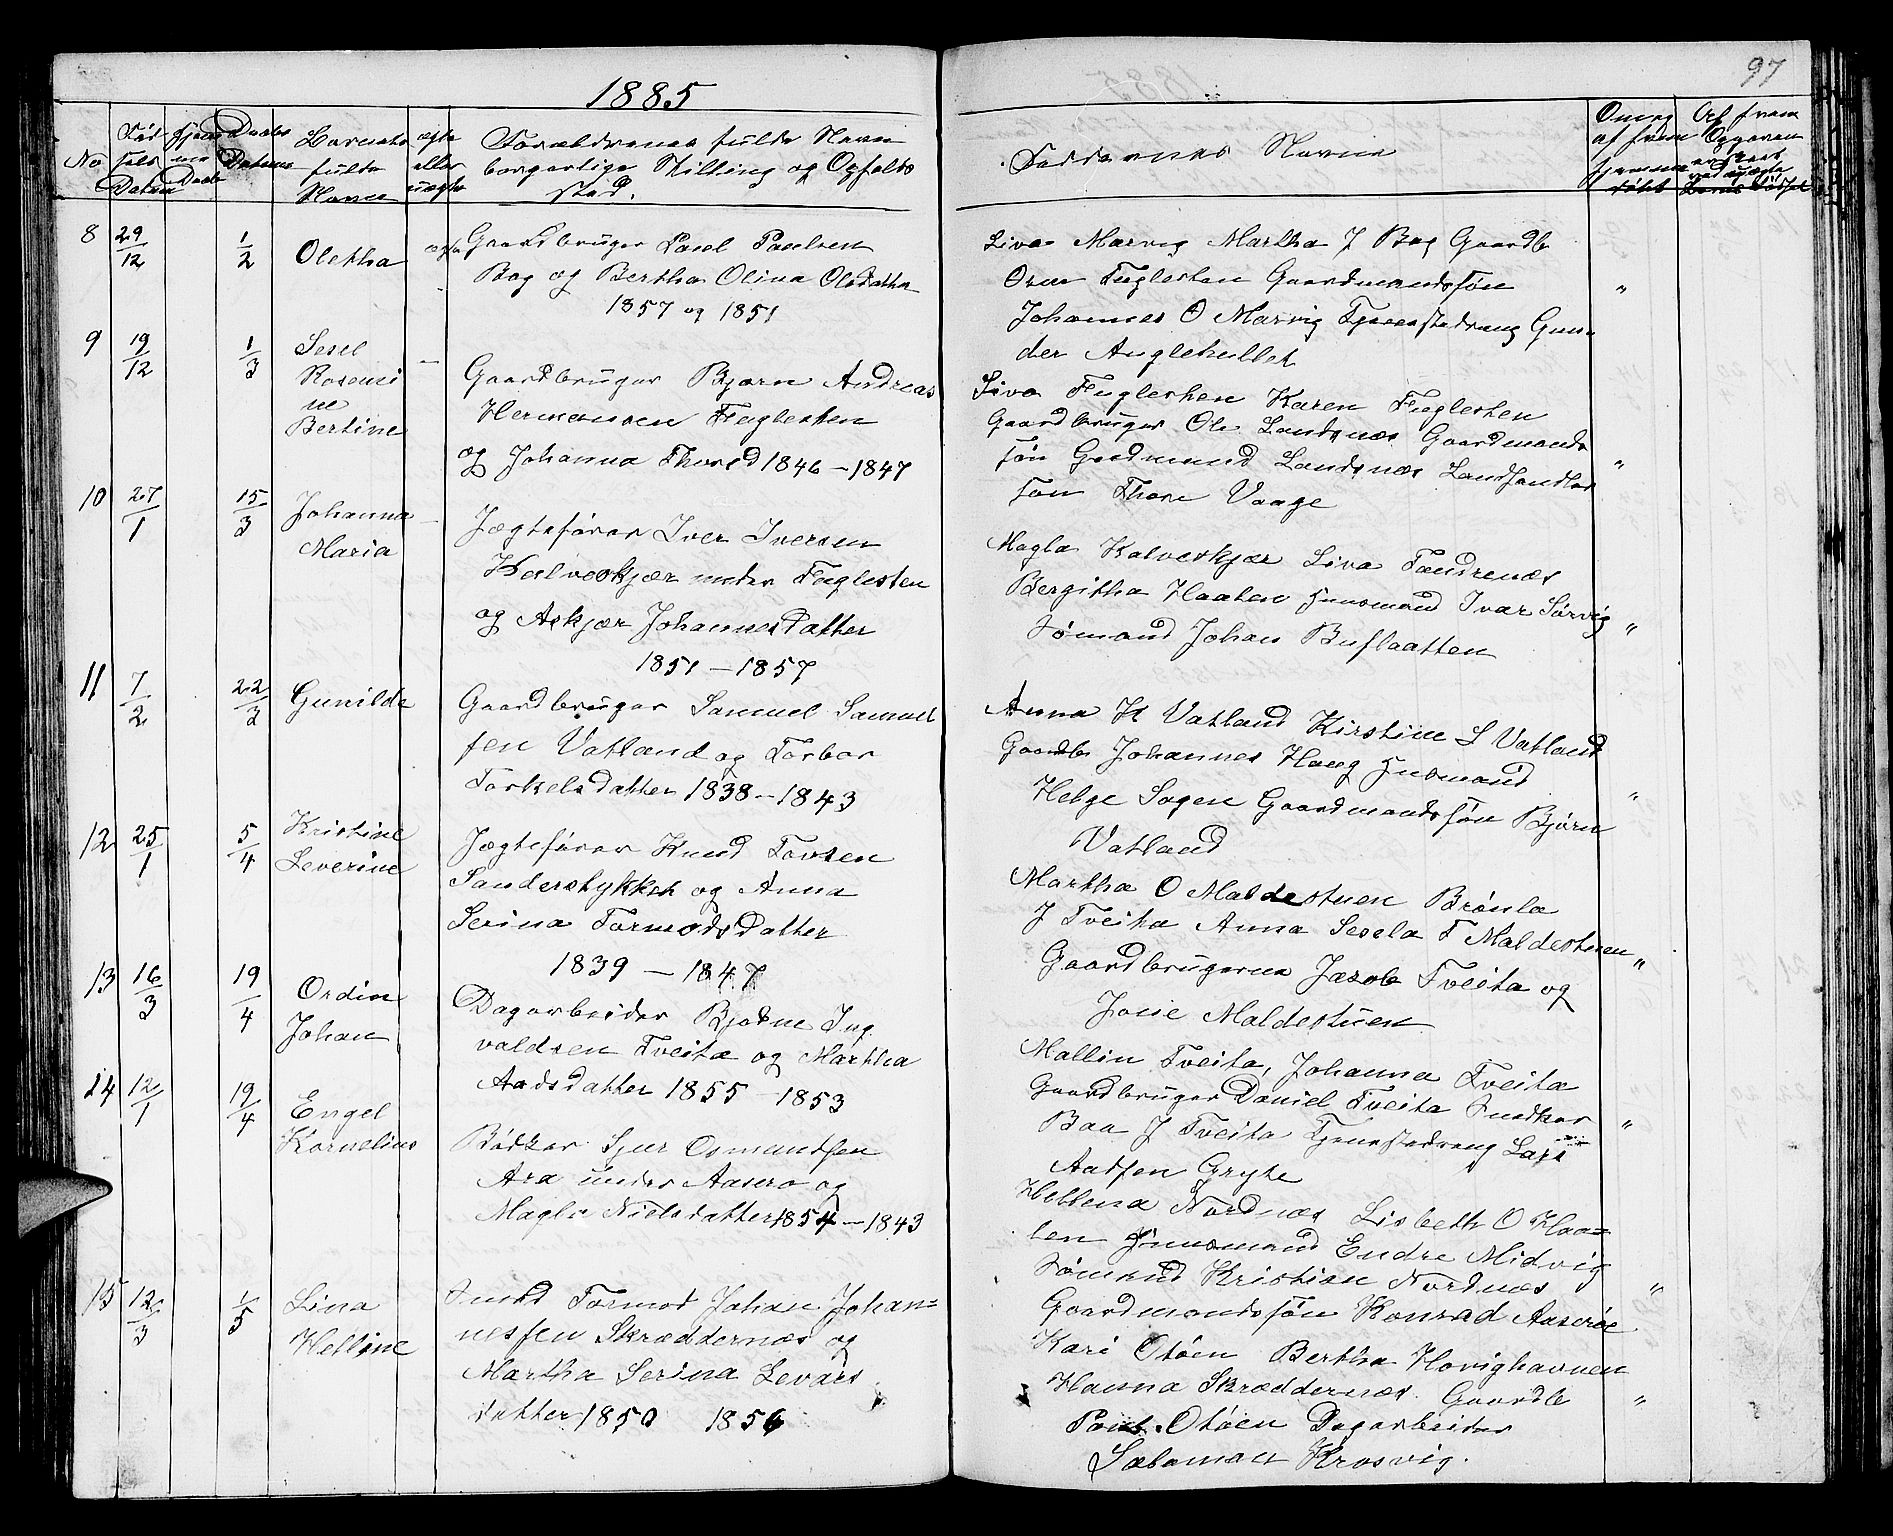 1885
97
No
Fød
sels
Datum
Hjem
me
Daab
Daabs
Datum
Barnets
fulde
Navn
ægte
eller
uægte
Forældrenes fulde Navn
borgerlige Stilling og Opholds
sted.
Faddernes Navne
8 29/12 1/2 Oletha ægte
Gaardbruger Poul Poulsen
Bog og Bertha Olina Olsdatter
1857 og 1851
Siva Marvig Martha J Bog Gaardb
Fuglesten Gaardmandssøn
Johannes O Marvig Tjenestedreng Gun-
der Anglehullet
"
9 19/12 1/3 Sesel
Rosemi
ne
Bertine
Gaardbruger Bjørn Andreas
Hermansen Fuglesten
og Johanna Thorsd 1846 - 1847
Siva Fuglesten Karen Fuglesten
Gaardbruger Ole Landsnæs Gaardmands
søn Gudmund Landsnæs Landhandler
søn Thore Vaage
"
10 27/1 15/3 Johanna
Maria
Jægtefører Iver Iversen
Kalveskjær under Fuglesten
og Askjær Johannesdatter
1851 - 1857
Magla Kalveskjær Siva Sandrenæs
Bergitha Haaten Huusmand Ivar Sørvig
Sømand Johan Buflaatten
"
11 7/2 22/3 Gunilde
Gaardbruger Samuel Samuel
sen Vatland og Torbor
Torkelsdatter 1838 - 1843
Anna H Vatland Kirstine S Vatland
Gaardb Johannes Haug Huusmand
Helge Sagen Gaardmandssøn Bjørn
Vatland
"
12 25/1 5/4 Kristine
Severine
Jægtefører Knud Tovsen
Sanderstykket og Anna
Serina Tormodsdatter
1839 - 1847
Martha O Maldestuen Brønla
J Tveita Anna Sesela T Maldestuen
Gaardbrugerne Jacob Tveita og
Jone Maldestuen
"
13 16/3 19/4 Ordin
Johan
Dagarbeider Bjørne Ing
valdsen Tveita og Martha
Aadsdatter 1855 - 1853
Mallin Tveita, Johanna Tveita
Gaardbruger Daniel Tveita Snedker
Baa J Tveita Tjenestedreng Lars
Aadsen Gryte
"
14 12/1 19/4 Engel
Kornelius
Bødker Sjur Osmundsen
Ara under Aasero og
Magla Nielsdatter 1854 - 1843
Hellena Nordnæs Lisbeth O Haa-
ten Huusmand Endre Midvig
Sømand Kristian Nordnæs
Gaardmandssøn Konrad Aaserøe
"
15 12/3 1/5 Lina
Helline
Smed Tormod Johan Johan-
nessen Skræddernæs og
Martha Serina Sevars
datter 1850 1856
Kari Otøen Bertha Hovighavnen
Hanna Skræddernæs. Gaardb
Otøen Dagarbeider
Salomon Krosvig.
"